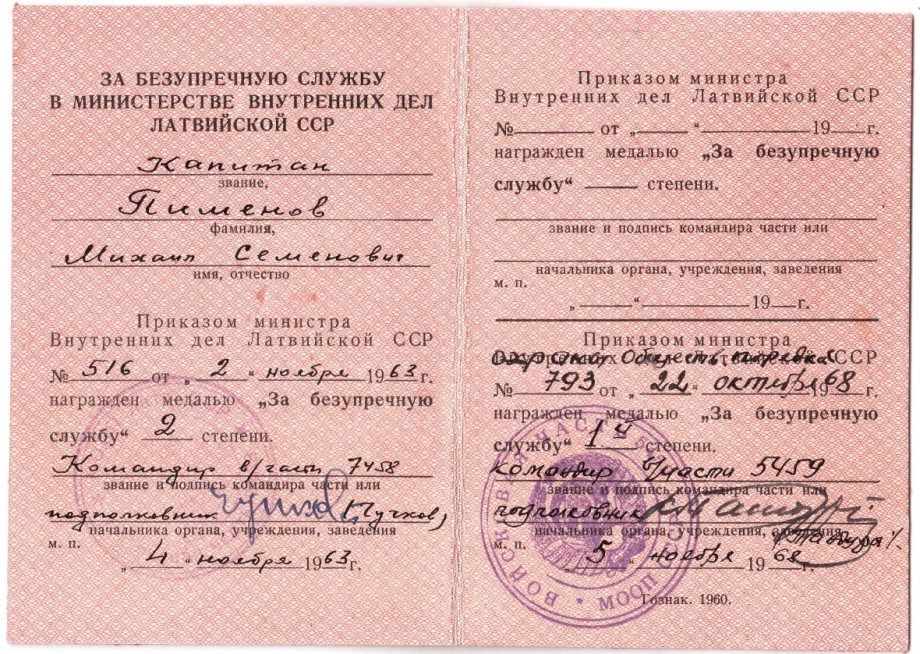 ЗА БЕЗУПРЕЧНУЮ СЛУЖБУ
В МИНИСТЕРСТВЕ ВНУТРЕННИХ ДЕЛ
ЛАТВИЙСКОЙ ССР
Капитан
звание,
Пименов
фамилия,
Михаил Семенович
имя, отчество
Приказом министра
Внутренних дел Латвийской ССР
№ 516 от „ 2 “ ноября 1963 г.
награжден медалью „За безупречную
службу“ 2 степени.
Командир в/части 7458
звание и подпись командира части или
подполковник Пучков
начальника органа, учреждения, заведения
м. п.
„ 4 “ ноября 1963 г.
Приказом министра
Внутренних дел Латвийской ССР
№ от „ “ 19 г.
награжден медалью „За безупречную
службу“ степени.
звание и подпись командира части или
начальника органа, учреждения, заведения
м. п.
„ “ 19 г.
Приказом министра
Внутренних ССР
охраны обществ. порядка
№ 793 от „ 22 “ октября 68 г.
награжден медалью „За безупречную
службу“ 1й степени.
командир части 5459
звание и подпись командира части или
подполковник
начальника органа, учреждения, заведения
м. п.
„ 5 “ ноября 1968 г.
ВОЙСКОВАЯ ЧАСТЬ
МООП СССР
Гознак. 1960.